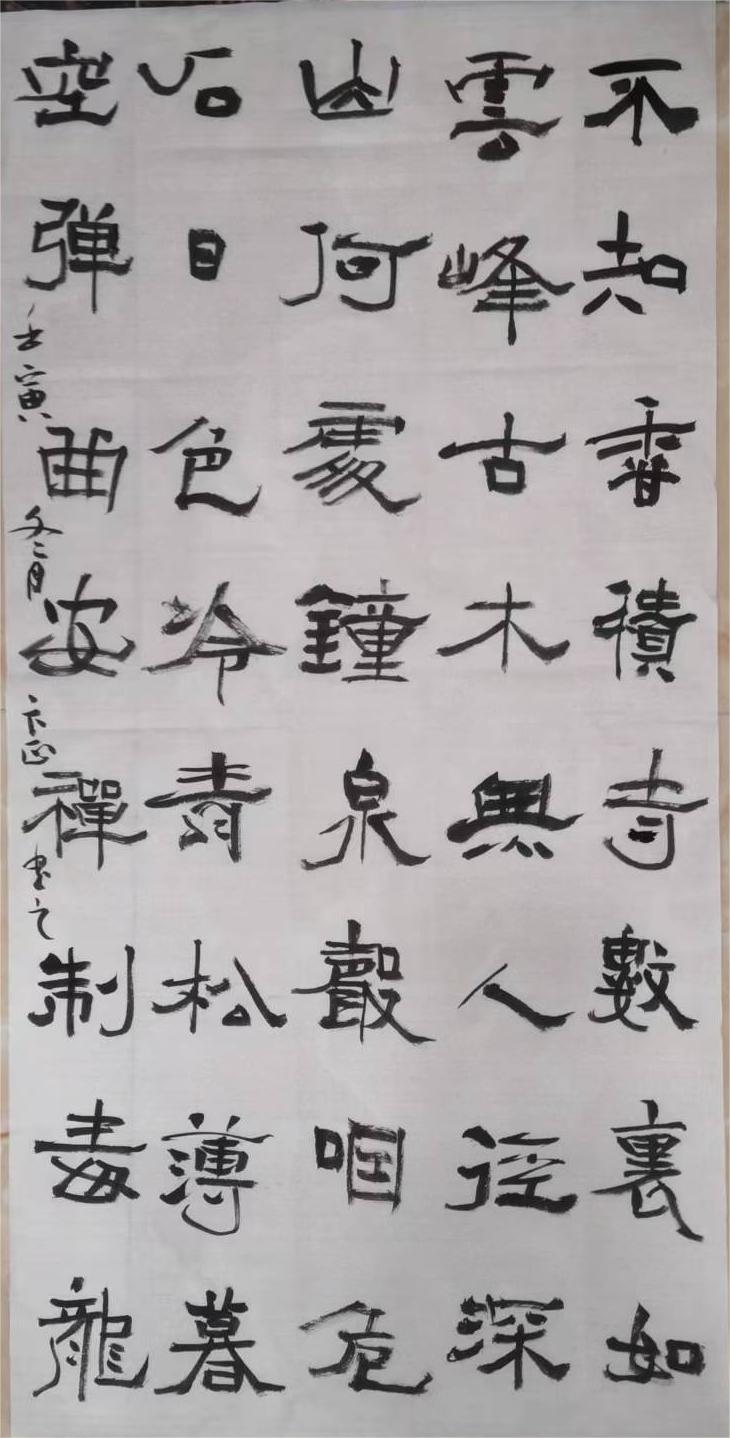 不知香積寺數裏如
雲峰古木無人逕深
山何處鐘泉聲咽危
石日色冷青松薄暮
空弹曲安禪制毒龍
壬寅冬月卞正书之